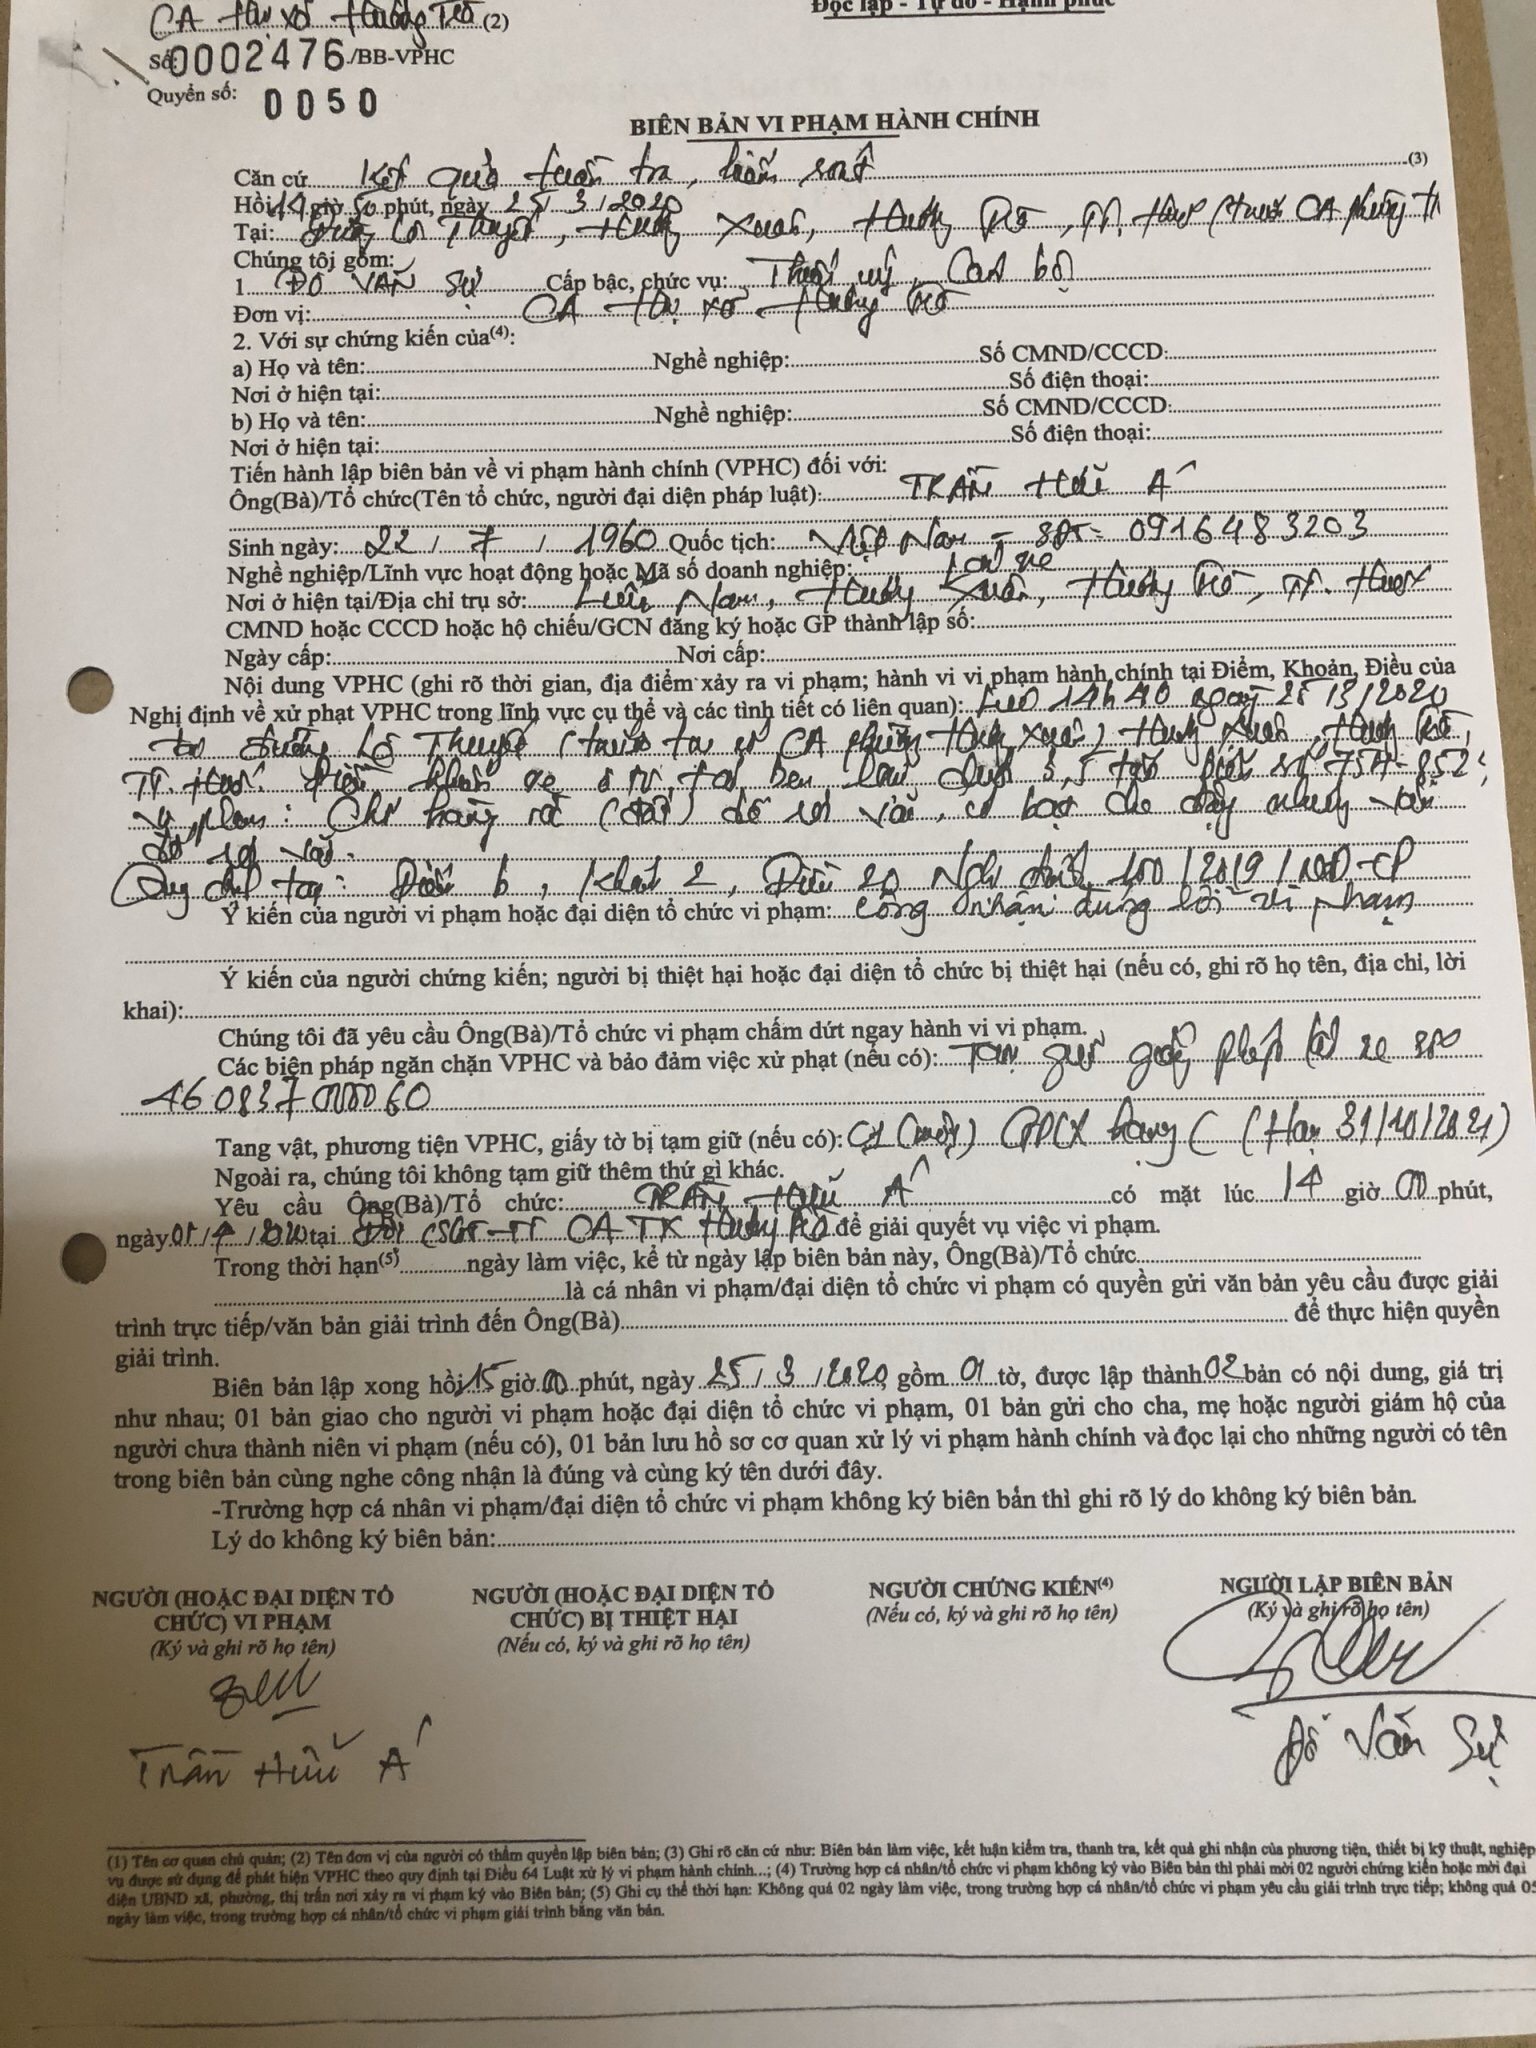 Độc lập - Tự do - Hạnh phúc
CA thị xã Hương Trà (2)
Số: 0002476 /BB-VPHC
Quyển số: 0050
BIÊN BẢN VI PHẠM HÀNH CHÍNH
Căn cứ Kết quả tuần tra, kiểm soát (3)
Hồi 14 giờ 50 phút, ngày 25/3/2020
Tại: Đường Lý Thái Hương Xuân, Hương Trà, TT. Huế (trước CA phường
Chúng tôi gồm:
1 ĐỖ VĂN SỰ Cấp bậc, chức vụ: Thiếu uý, Cán bộ
Đơn vị: CA thị xã Hương Trà
2. Với sự chứng kiến của(4):
a) Họ và tên: Nghề nghiệp: Số CMND/CCCD:
Nơi ở hiện tại: Số điện thoại:
b) Họ và tên: Nghề nghiệp: Số CMND/CCCD:
Nơi ở hiện tại: Số điện thoại:
Tiến hành lập biên bản về vi phạm hành chính (VPHC) đối với:
Ông(Bà)/Tổ chức(Tên tổ chức, người đại diện pháp luật): TRẦN HỮU Á
Sinh ngày: 22 / 7 / 1960 Quốc tịch: Việt Nam - SĐT: 0916483203
Nghề nghiệp/Lĩnh vực hoạt động hoặc Mã số doanh nghiệp: Lái xe
Nơi ở hiện tại/Địa chỉ trụ sở: Nam, Hương Xuân, Hương Trà, TT. Huế
CMND hoặc CCCD hoặc hộ chiếu/GCN đăng ký hoặc GP thành lập số:
Ngày cấp: Nơi cấp:
Nội dung VPHC (ghi rõ thời gian, địa điểm xảy ra vi phạm; hành vi vi phạm hành chính tại Điểm, Khoản, Điều của
Nghị định về xử phạt VPHC trong lĩnh vực cụ thể và các tình tiết có liên quan): Lúc 14h40 ngày 25/3/2020
tại đường (trước trụ sở CA phường Hương Xuân) Hương Xuân, Hương Trà,
TT. Huế. điều khiển xe ô tô tải ben 5,5 tấn biển số 75H-852
Vi phạm: Chở hàng rời (đất) để rơi vãi, có bạt che đậy nhưng vẫn
để rơi vãi.
Quy định tại: Điểm b, Khoản 2, Điều 20 Nghị định 100/2019/NĐ-CP
Ý kiến của người vi phạm hoặc đại diện tổ chức vi phạm: công nhận đúng lỗi vi phạm
Ý kiến của người chứng kiến; người bị thiệt hại hoặc đại diện tổ chức bị thiệt hại (nếu có, ghi rõ họ tên, địa chỉ, lời
khai):
Chúng tôi đã yêu cầu Ông(Bà)/Tổ chức vi phạm chấm dứt ngay hành vi vi phạm.
Các biện pháp ngăn chặn VPHC và bảo đảm việc xử phạt (nếu có): Tạm giữ giấy phép lái xe số
460837000060
Tang vật, phương tiện VPHC, giấy tờ bị tạm giữ (nếu có): 01 (một) GPLX hạng C (Hạn 31/10/2021)
Ngoài ra, chúng tôi không tạm giữ thêm thứ gì khác.
Yêu cầu Ông(Bà)/Tổ chức: TRẦN HỮU Á có mặt lúc 14 giờ 00 phút,
ngày 01/4/2020 tại Đội CSGT-TT CA TX Hương Trà để giải quyết vụ việc vi phạm.
Trong thời hạn(5) ngày làm việc, kể từ ngày lập biên bản này, Ông(Bà)/Tổ chức
là cá nhân vi phạm/đại diện tổ chức vi phạm có quyền gửi văn bản yêu cầu được giải
trình trực tiếp/văn bản giải trình đến Ông(Bà) để thực hiện quyền
giải trình.
Biên bản lập xong hồi 15 giờ 00 phút, ngày 25/3/2020, gồm 01 tờ, được lập thành 02 bản có nội dung, giá trị
như nhau; 01 bản giao cho người vi phạm hoặc đại diện tổ chức vi phạm, 01 bản gửi cho cha, mẹ hoặc người giám hộ của
người chưa thành niên vi phạm (nếu có), 01 bản lưu hồ sơ cơ quan xử lý vi phạm hành chính và đọc lại cho những người có tên
trong biên bản cùng nghe công nhận là đúng và cùng ký tên dưới đây.
-Trường hợp cá nhân vi phạm/đại diện tổ chức vi phạm không ký biên bản thì ghi rõ lý do không ký biên bản.
Lý do không ký biên bản:
NGƯỜI (HOẶC ĐẠI DIỆN TỔ CHỨC) VI PHẠM
(Ký và ghi rõ họ tên)
Trần Hữu Á
NGƯỜI (HOẶC ĐẠI DIỆN TỔ CHỨC) BỊ THIỆT HẠI
(Nếu có, ký và ghi rõ họ tên)
NGƯỜI CHỨNG KIẾN(4)
(Nếu có, ký và ghi rõ họ tên)
NGƯỜI LẬP BIÊN BẢN
(Ký và ghi rõ họ tên)
Đỗ Văn Sự
(1) Tên cơ quan chủ quản; (2) Tên đơn vị của người có thẩm quyền lập biên bản; (3) Ghi rõ căn cứ như: Biên bản làm việc, kết luận kiểm tra, thanh tra, kết quả ghi nhận của phương tiện, thiết bị kỹ thuật, nghiệp
vụ được sử dụng để phát hiện VPHC theo quy định tại Điều 64 Luật xử lý vi phạm hành chính...; (4) Trường hợp cá nhân/tổ chức vi phạm không ký vào Biên bản thì phải mời 02 người chứng kiến hoặc mời đại
diện UBND xã, phường, thị trấn nơi xảy ra vi phạm ký vào Biên bản; (5) Ghi cụ thể thời hạn: Không quá 02 ngày làm việc, trong trường hợp cá nhân/tổ chức vi phạm yêu cầu giải trình trực tiếp; không quá 05
ngày làm việc, trong trường hợp cá nhân/tổ chức vi phạm giải trình bằng văn bản.